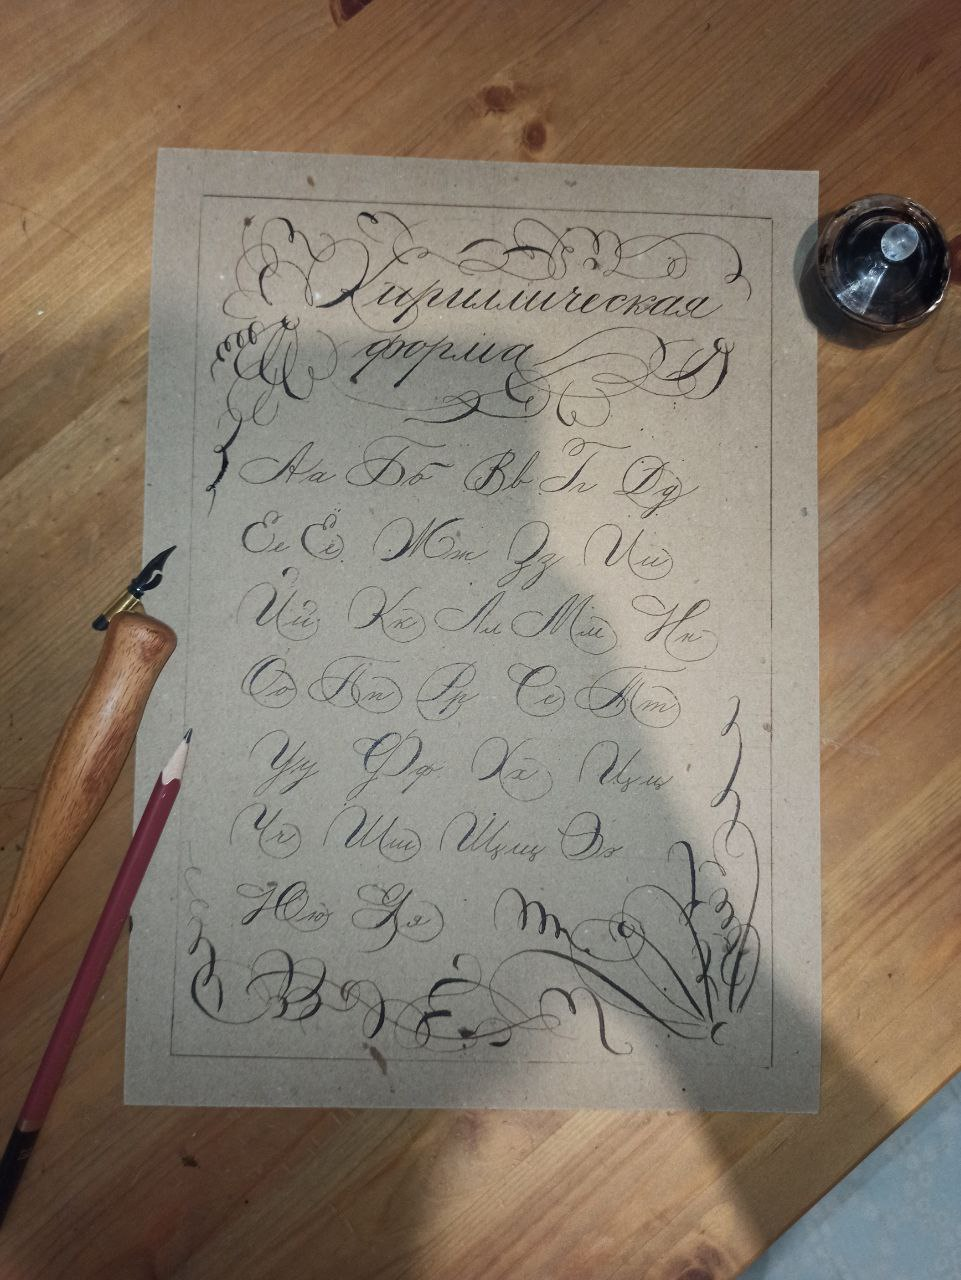 Кириллическая
форма
Аа Бб Вв Гг Дд
Ее Ёё Жж Зз Ии
Йй Кк Лл Мм Нн
Оо Пп Рр Сс Тт
Уу Фф Хх Цц
Чч Шш Щщ Ээ
Юю Яя